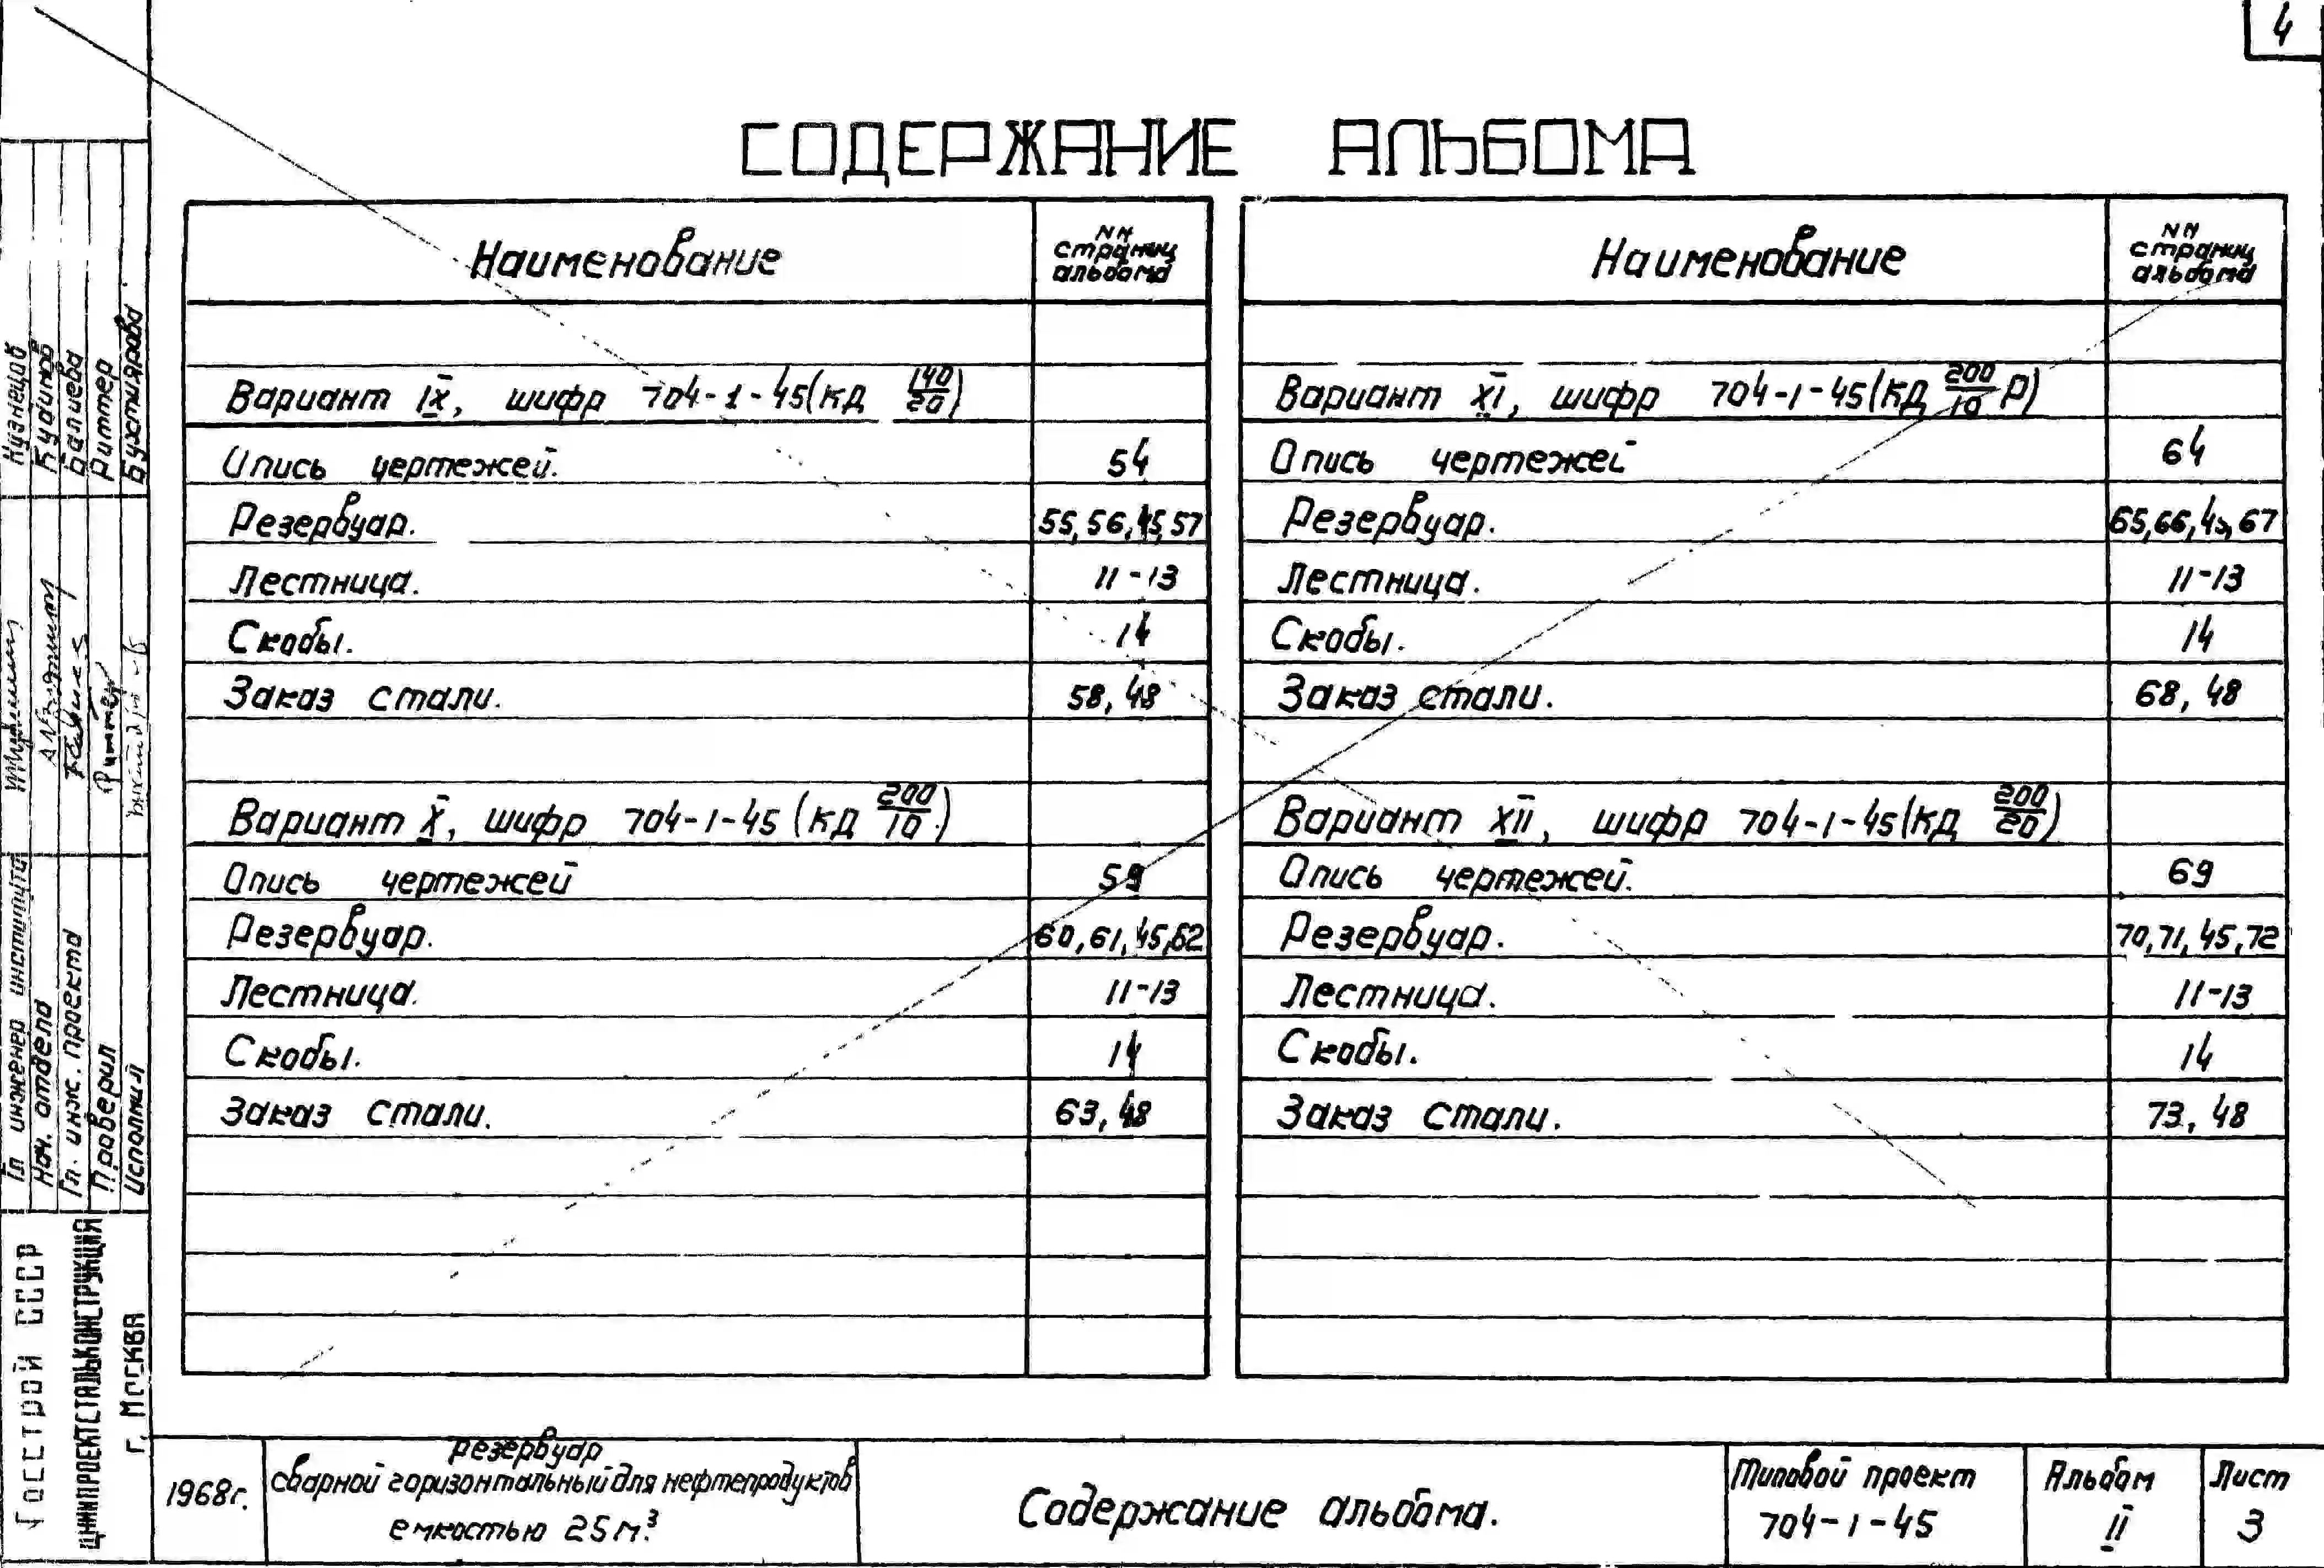 4
СОДЕРЖАНИЕ АЛЬБОМА
Наименование NN страниц альбома
Вариант IX, шифр 704-1-45(КД 140/20)
Опись чертежей. 54
Резервуар. 55, 56, 45, 57
Лестница. 11-13
Скобы. 14
Заказ стали. 58, 48
Вариант X, шифр 704-1-45 (КД 200/10)
Опись чертежей 59
Резервуар. 60, 61, 45, 62
Лестница. 11-13
Скобы. 14
Заказ стали. 63, 48
Наименование NN страниц альбома
Вариант XI, шифр 704-1-45(КД 200/10 Р)
Опись чертежей 64
Резервуар. 65, 66, 45, 67
Лестница. 11-13
Скобы. 14
Заказ стали. 68, 48
Вариант XII, шифр 704-1-45(КД 200/20)
Опись чертежей. 69
Резервуар. 70, 71, 45, 72
Лестница. 11-13
Скобы. 14
Заказ стали. 73, 48
Гл инженер института Кузнецов
Нач. отдела
Гл. инж. проекта
Проверил Риттер Риттер
Исполнил
Госстрой СССР
ЦНИИПРОЕКТСТАЛЬКОНСТРУКЦИЯ
г. Москва
1968г.
Резервуар
сварной горизонтальный для нефтепродуктов
емкостью 25 м³
Содержание альбома.
Типовой проект
704-1-45
Альбом
II
Лист
3